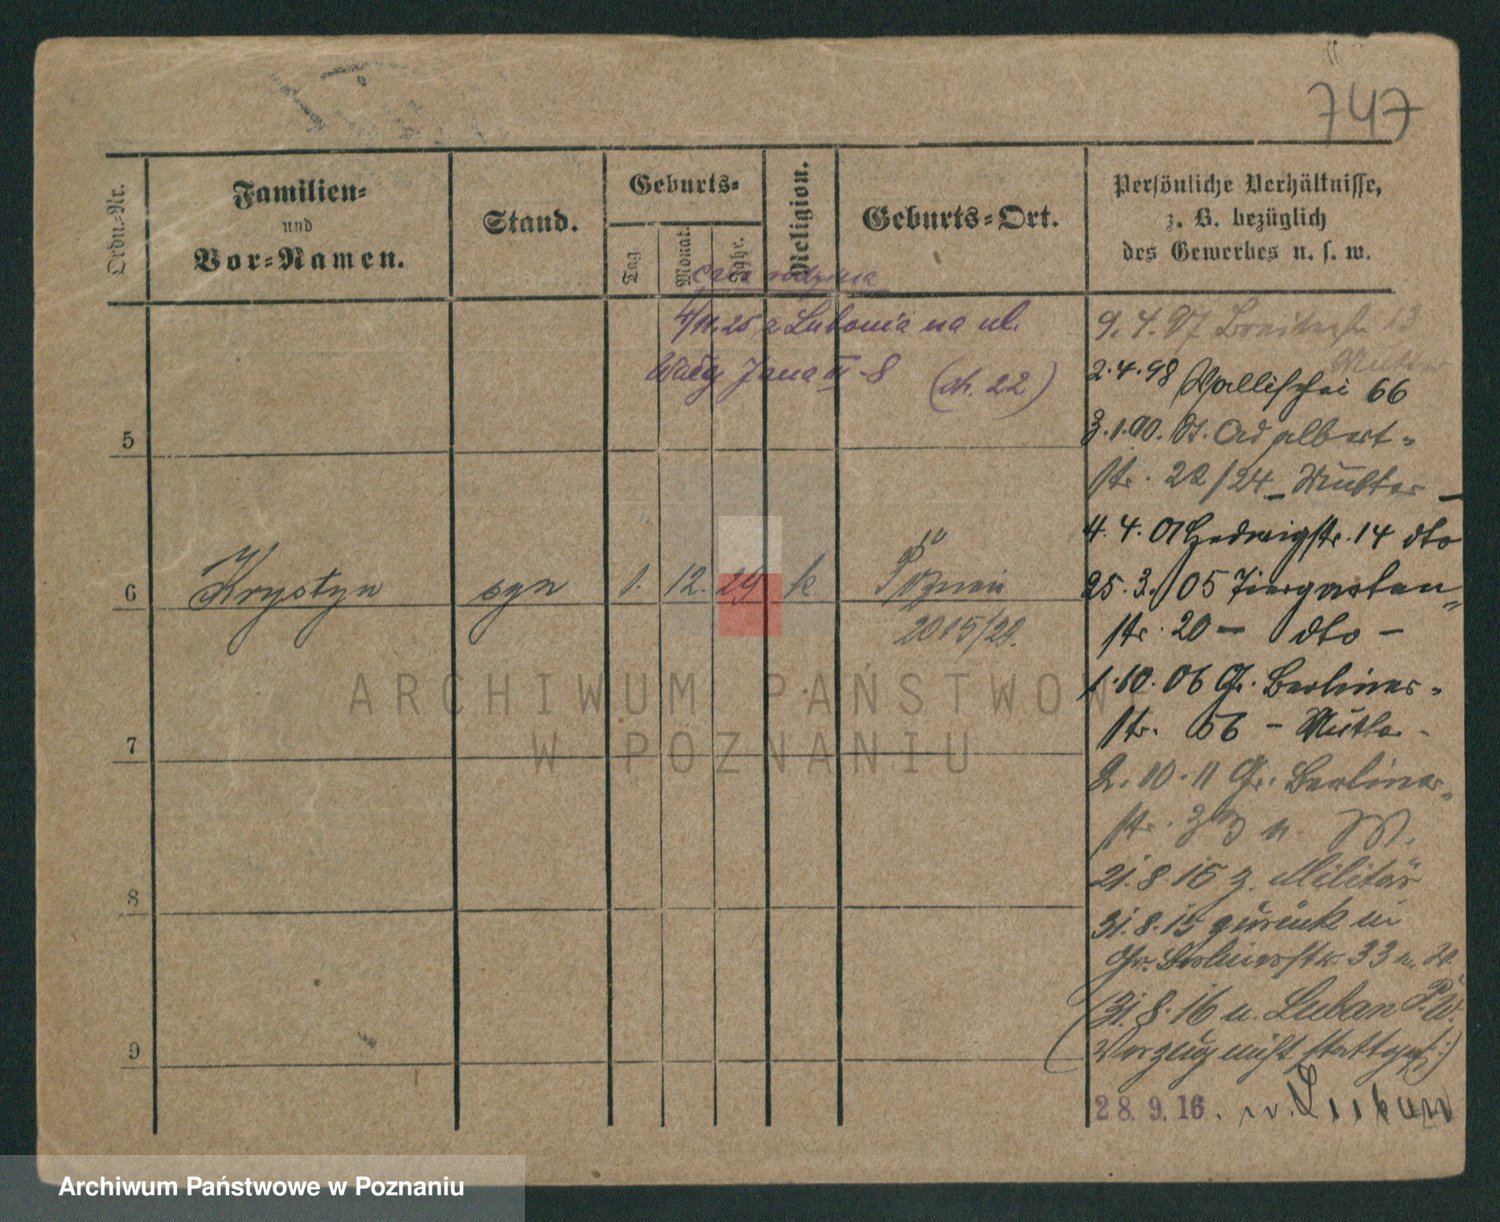 747
Ordn.-Nr.
Familien-
und
Vor-Namen.
Stand.
Geburts-
Tag
Monat.
Jahr.
Religion.
Geburts-Ort.
Persönliche Verhältnisse,
z. B. bezüglich
des Gewerbes u. s. w.
cała rodzina
4/11.25 z Lubonia na ul.
Wały Jana III-8 (dt. 22)
5
6 Krystyn syn 1. 12. 29 k Poznań
2015/29.
7
8
9
9.4.97 Breitestr. 13
Mutter
2.4.98 Wallischei 66
3.1.00. St. Adalbert-
str. 22/24 - Mutter -
4.4.01 Hedwigstr. 14 dto
25.3.05 Tiergarten-
str. 20 - dto -
1.10.06 Gr. Berliner-
str. 56 - Mutter -
2.10.11 Gr. Berliner-
str. 33 n. W.
21.8.15 z. Militär
31.8.15 zurück in
Gr. Berlinerstr. 33 n. W.
(31.8.16 n. Luban P.W.
Verzug nicht stattgef.)
28.9.16. n. Luban
ARCHIWUM PAŃSTWOWE
W POZNANIU
Archiwum Państwowe w Poznaniu